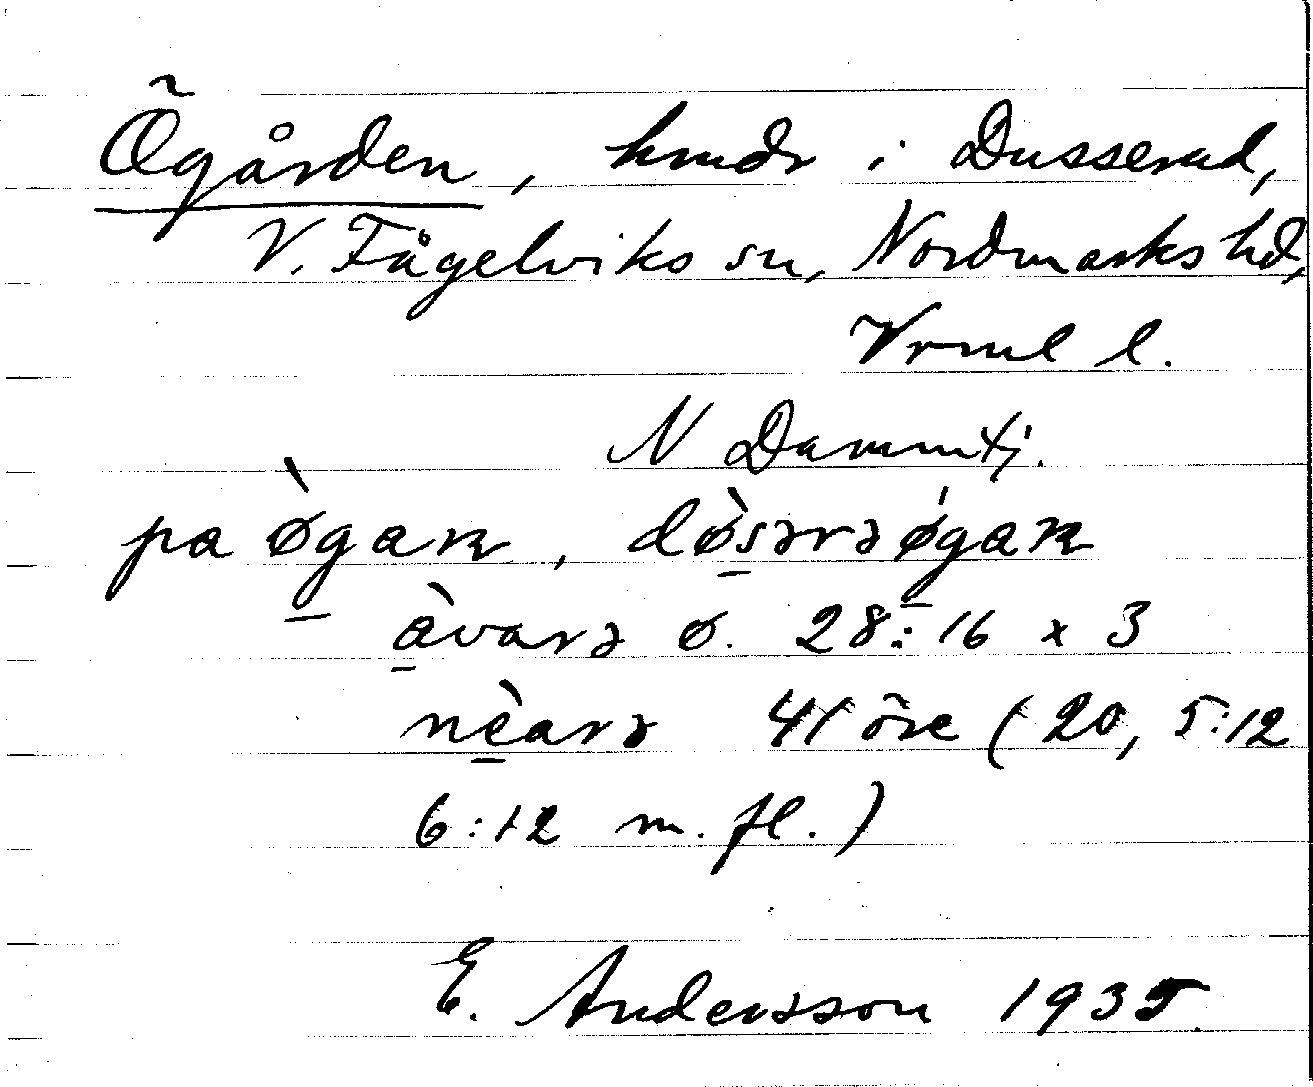 Ögården, hmdr i Dusserud,
V. Fågelviks sn, Nordmarks hd,
Vrml l.
N Dammtj.
pa ø̀gaɳ, dø̀sərəǿgaɳ
àvarə ø. 28:16 x 3
nèarə 41 öre (20, 5:12
6:12 m.fl.)
E. Andersson 1935.